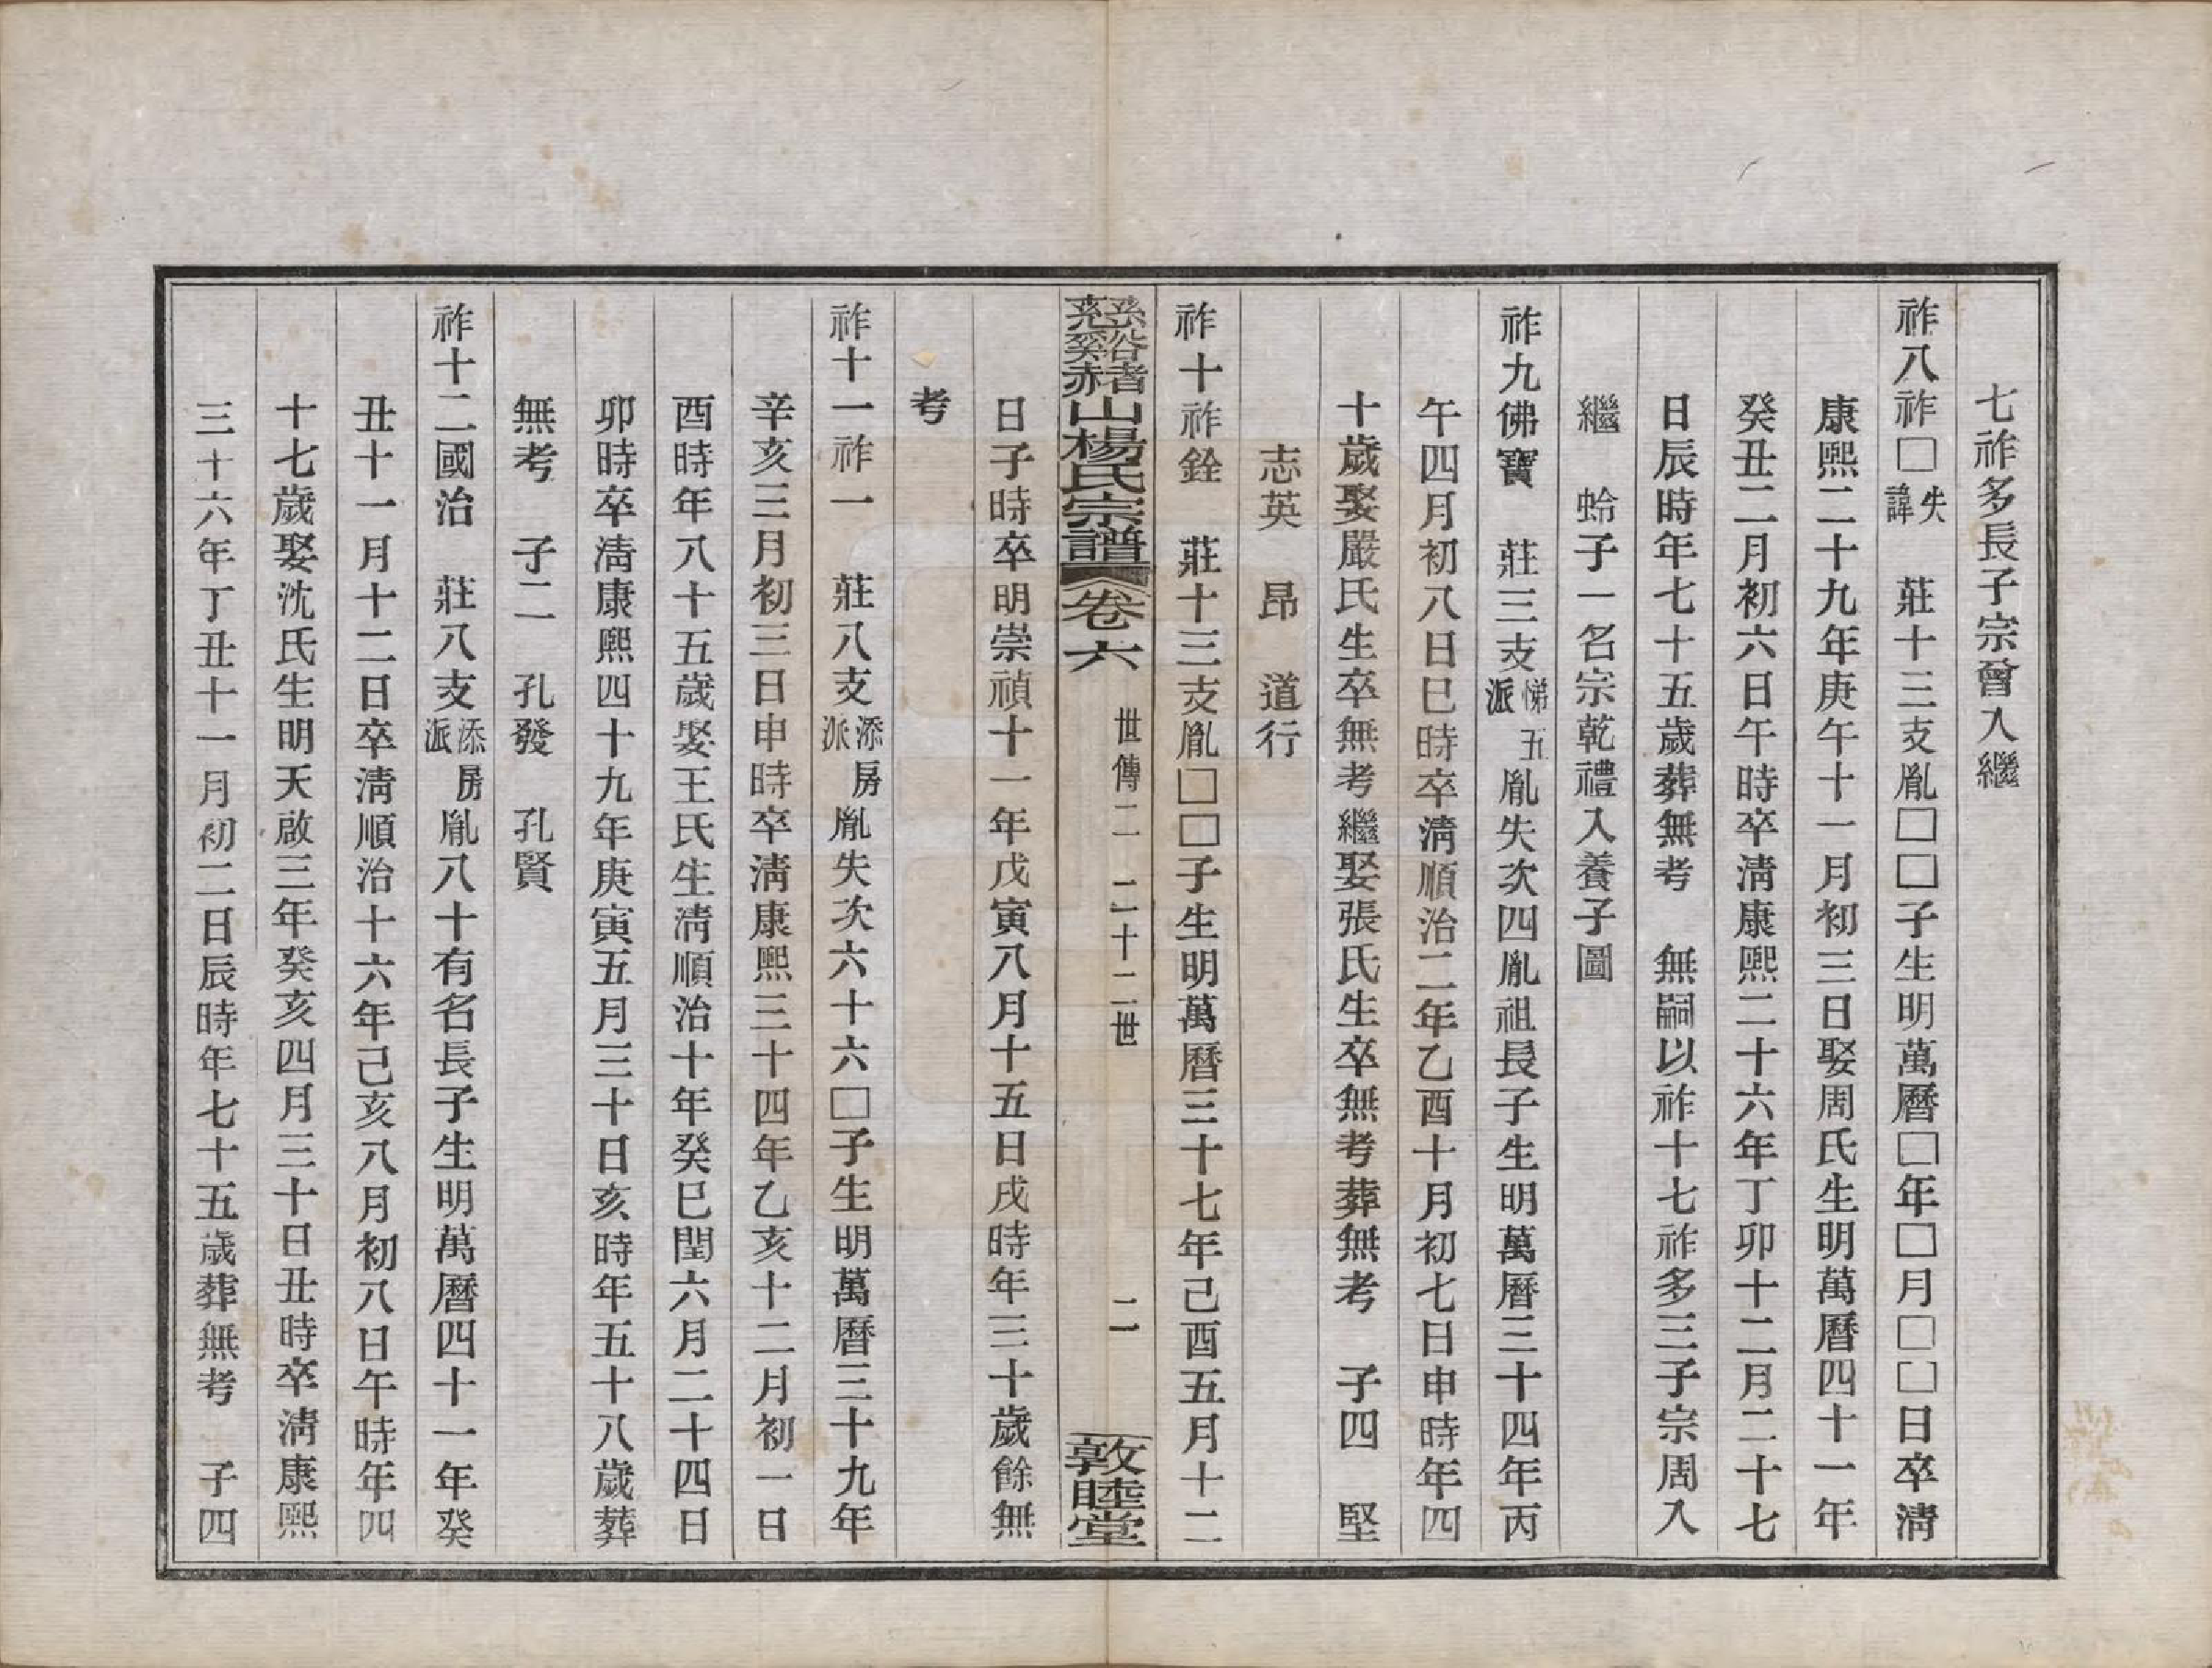 七祚多長子宗曾入繼
祚八祚□失諱　莊十三支胤□□子生明萬曆□年□月□□日卒淸
康熙二十九年庚午十一月初三日娶周氏生明萬曆四十一年
癸丑二月初六日午時卒淸康熙二十六年丁卯十二月二十七
日辰時年七十五歲葬無考　無嗣以祚十七祚多三子宗周入
繼　蛉子一名宗乾禮入養子圖
祚九佛寶　莊三支悌五派胤失次四胤祖長子生明萬曆三十四年丙
午四月初八日巳時卒淸順治二年乙酉十月初七日申時年四
十歲娶嚴氏生卒無考繼娶張氏生卒無考葬無考　子四　堅
志英　昂　道行
祚十祚銓　莊十三支胤□□子生明萬曆三十七年己酉五月十二
慈谿赭山楊氏宗譜　卷六　世傳二　二十二世　二　敦睦堂
日子時卒明崇禎十一年戊寅八月十五日戌時年三十歲餘無
考
祚十一祚一　莊八支添房派胤失次六十六□子生明萬曆三十九年
辛亥三月初三日申時卒淸康熙三十四年乙亥十二月初一日
酉時年八十五歲娶王氏生淸順治十年癸巳閏六月二十四日
卯時卒淸康熙四十九年庚寅五月三十日亥時年五十八歲葬
無考　子二　孔發　孔賢
祚十二國治　莊八支添房派胤八十有名長子生明萬曆四十一年癸
丑十一月十二日卒淸順治十六年己亥八月初八日午時年四
十七歲娶沈氏生明天啟三年癸亥四月三十日丑時卒淸康熙
三十六年丁丑十一月初二日辰時年七十五歲葬無考　子四